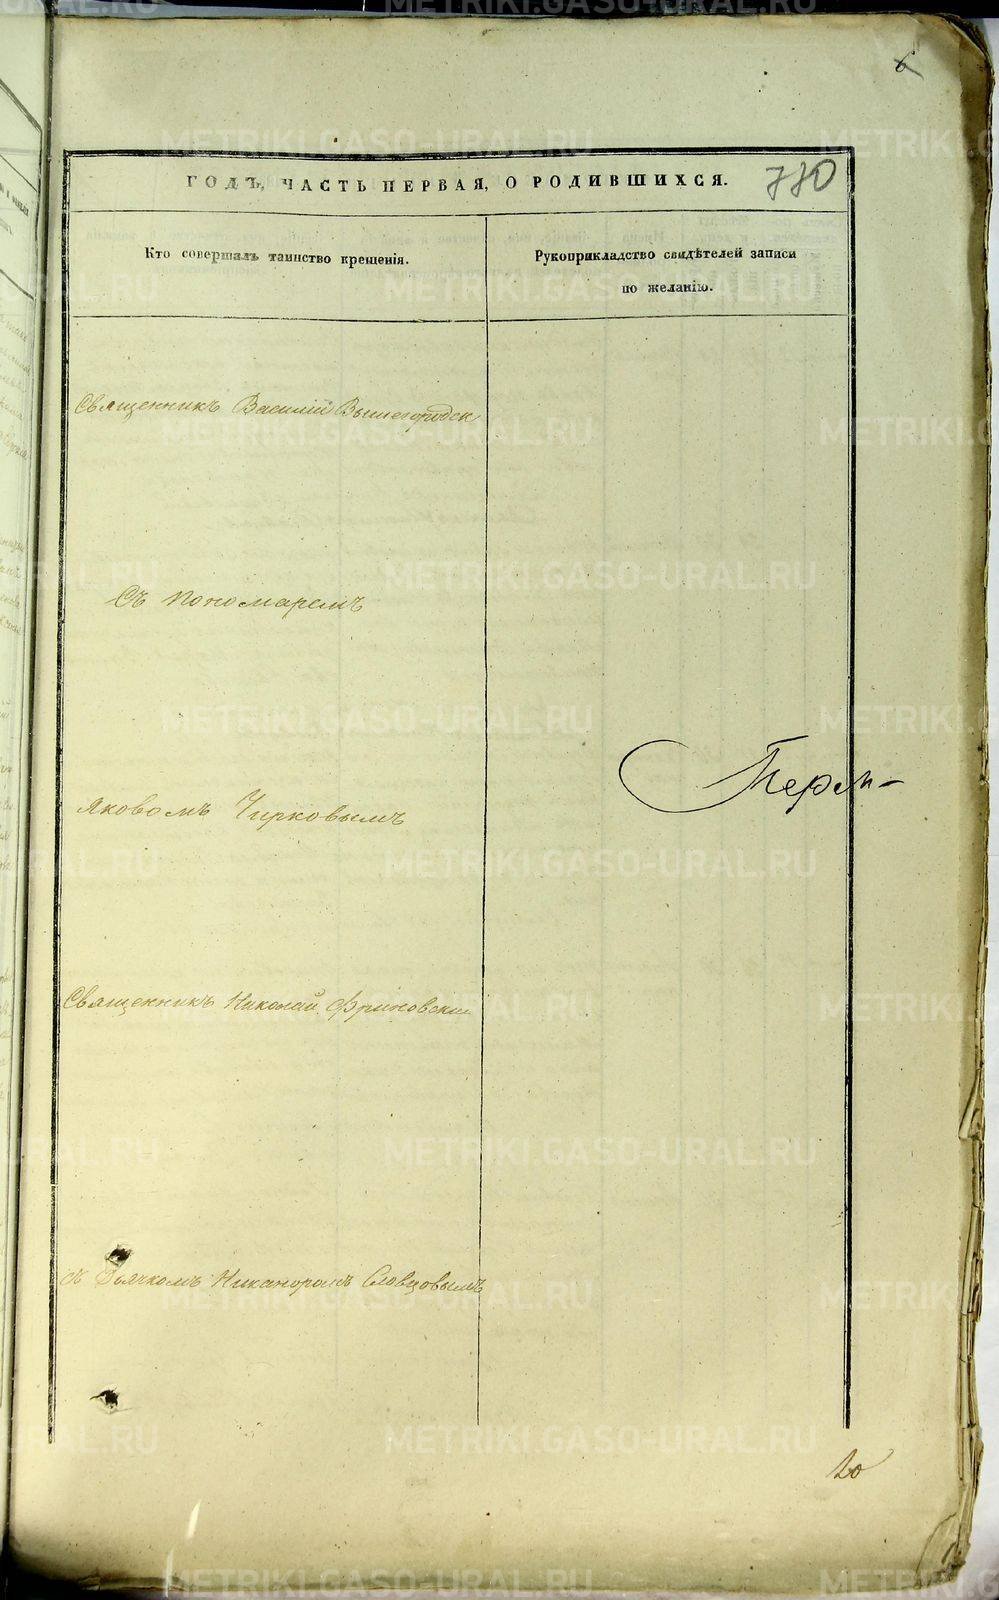 6
ГОДЪ, ЧАСТЬ ПЕРВАЯ, О РОДИВШИХСЯ. 770
Кто совершалъ таинство крещенія.
Рукоприкладство свидѣтелей записи
по желанію.
Священникъ Василій Вышегородск
Съ Пономаремъ
Яковомъ Чирковымъ
Священникъ Николай
съ Дьячкомъ Никаноромъ Словцовымъ
Перм-
20
METRIKI.GASO-URAL.RU